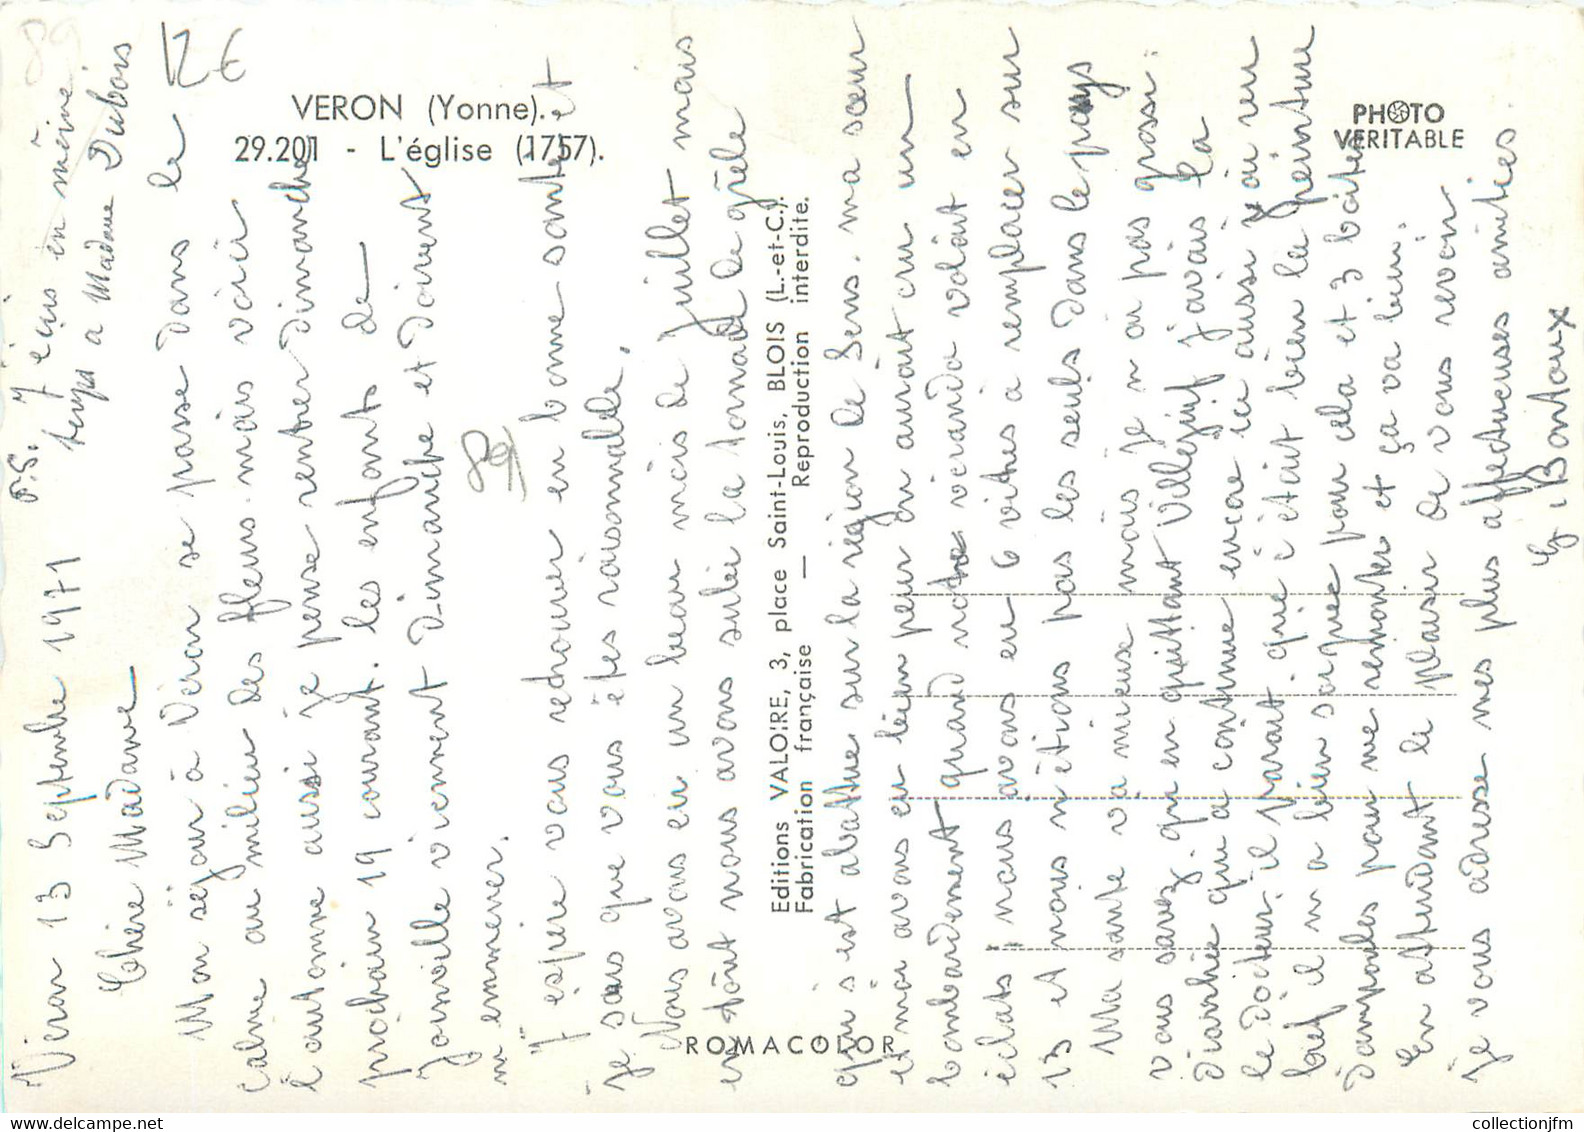 89
12€
VERON (Yonne).
29.201 - L'église (1757).
PHOTO
VERITABLE
Editions VALOIRE, 3, place Saint-Louis, BLOIS (L.-et-C.).
Fabrication française — Reproduction interdite.
ROMACOLOR
89
Veron 13 Septembre 1971
P.S. J'écris en même
temps à Madame Dubois
Chère Madame
Mon séjour à Véron se passe dans le
calme au milieu des fleurs. mais voici
l'automne aussi je pense rentrer dimanche
prochain 19 courant. les enfants de
Joinville viennent Dimanche et doivent
m'emmener.
J'espère vous retrouver en bonne santé et
je sais que vous êtes raisonnable.
Nous avons eu un beau mois de Juillet mais
en Août nous avons subi la tornade de grêle
qui s'est abattue sur la région de Sens. ma sœur
et moi avons eu bien peur on aurait cru un
bombardement quand notre véranda volait en
éclats, nous avons eu 6 vitres à remplacer sur
13 et nous n'étions pas les seuls dans le pays
Ma santé va mieux mais je n'ai pas grossi.
vous savez qu'en quittant Villejuif j'avais la
diarrhée qui a continué encore ici aussi j'ai vu
le Docteur, il parait que c'était bien la peinture
bref il m'a bien soignée pour cela et 3 boites
d'ampoules pour me remonter et ça va bien.
En attendant le plaisir de vous revoir
je vous adresse mes plus affectueuses amitiés.
G. Bontoux
collectionjfm